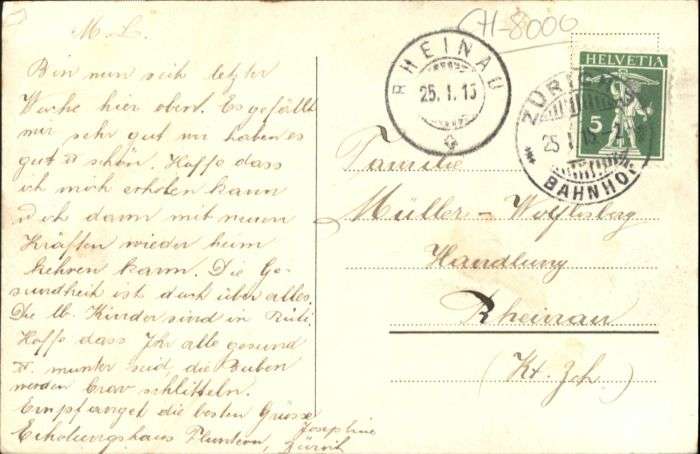 CH-8000
M. L.
Bin nun seit letzter
Woche hier oben. Es gefällt
mir sehr gut wir haben es
gut u schön. Hoffe dass
ich mich erholen kann
u ich dann mit neuen
Kräften wieder heim
kehren kann. Die Ge-
sundheit ist doch über alles.
Die lb. Kinder sind in Rüti.
Hoffe dass Ihr alle gesund
u. munter seid, die Buben
werden brav schlitteln.
Empfanget die besten Grüsse
Josephine
Erholungshaus Fluntern, Zürich
RHEINAU
25.1.13
HELVETIA
5
ZÜRICH
25.I.13
BAHNHOF
Familie
Müller-Wolfensberg
Handlung
Rheinau
(Kt. Zch.)